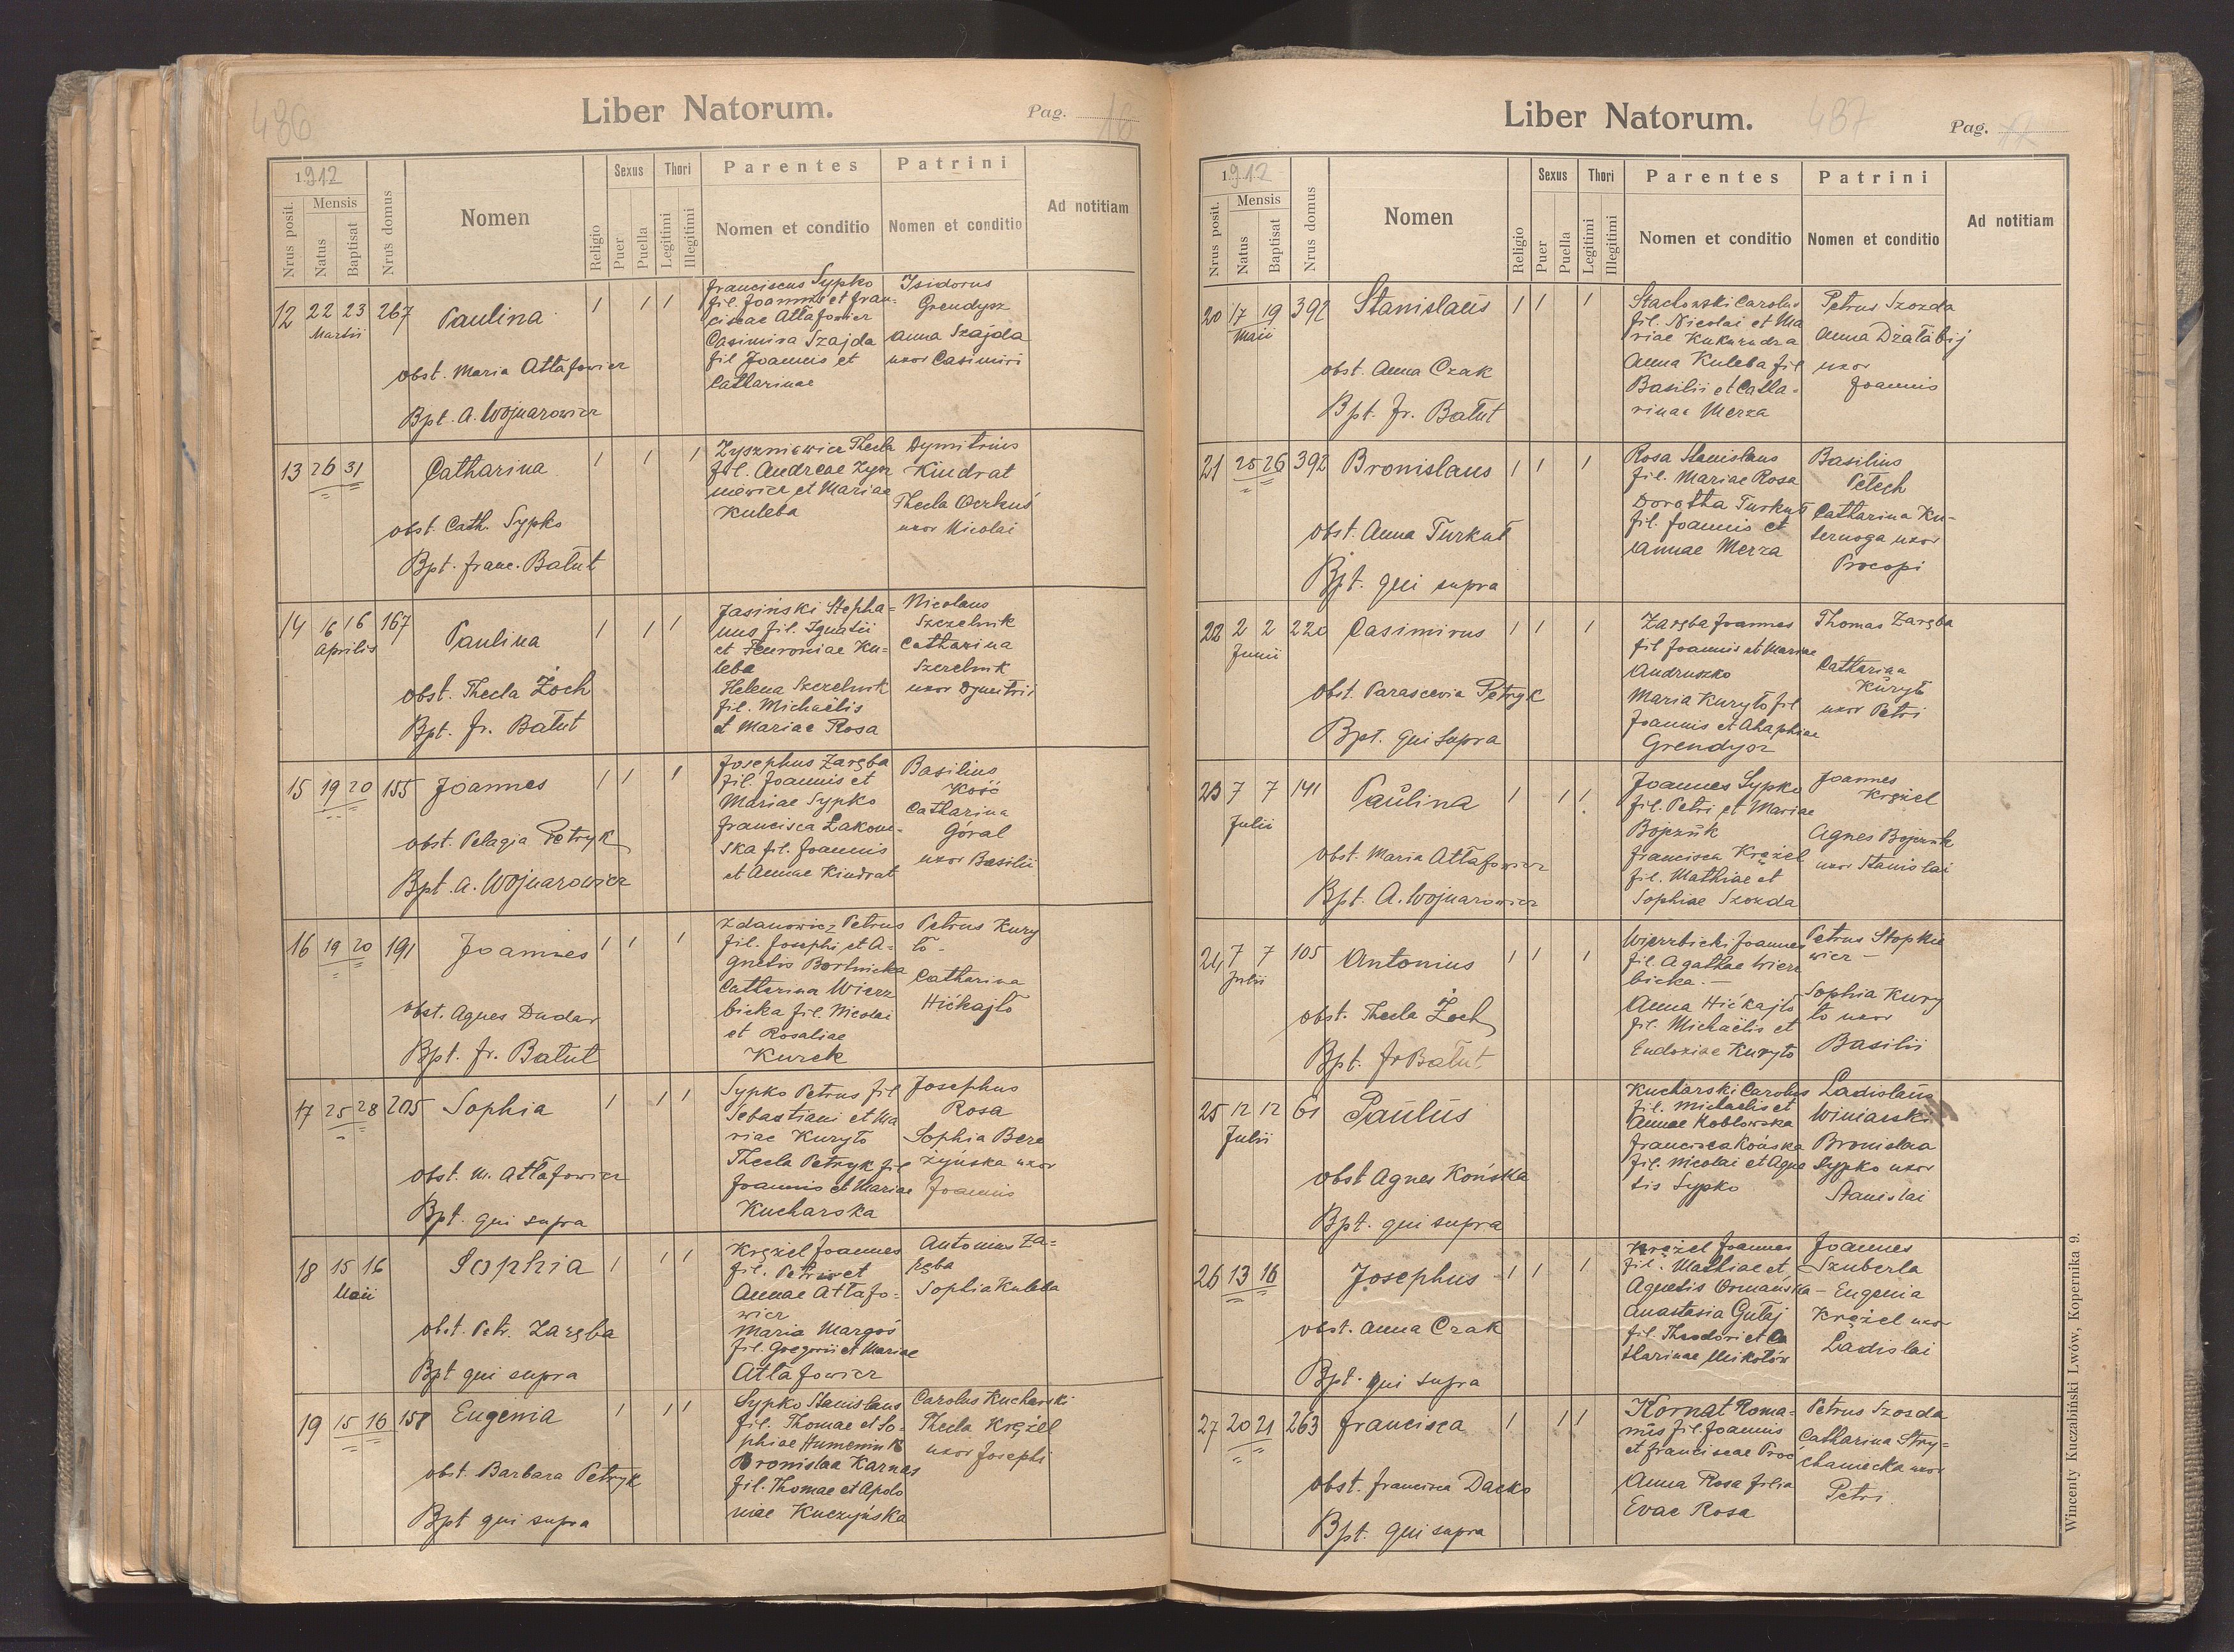 486
Liber Natorum.
Pag. 16
1.912
Mensis
Nrus posit.
Natus
Baptisat
Nrus domus
Nomen
Religio
Sexus
Puer
Puella
Thori
Legitimi
Illegitimi
Parentes
Nomen et conditio
Patrini
Nomen et conditio
Ad notitiam
12 22 23 267 Paulina 1 1 1
Martii
obst. Maria Attafowicz
Bpt. A. Wojnarowicz
Franciscus Sypko
fil. Joannis et Fran-
ciscae Attafowicz
Casimira Szajda
fil Joannis et
Catharinae
Isidorus
Grendysz
Anna Szajda
uxor Casimiri
13 26 31 Catharina 1 1 1
obst. Cath. Sypko
Bpt. Franc. Batut
Zyszniewicz Thecla
fil. Andreae Zysz
niewicz et Mariae
Kuleba
Dymitrius
Kindrat
Thecla
uxor Nicolai
14 16 16 167 Paulina 1 1 1
Aprilis
obst. Thecla Żoch
Bpt. Fr. Batut
Jasiński Stepha=
nus fil. Ignatii
et Ku=
leba
Helena Szczelnik
fil. Michaëlis
et Mariae Rosa
Nicolaus
Szczelnik
Catharina
Szczelnik
uxor Dymitrii
15 19 20 155 Joannes 1 1 1
obst. Pelagia Petryk
Bpt. A. Wojnarowicz
Josephus Zaręba
fil. Joannis et
Mariae Sypko
Francisca Łakom-
ska fil. Joannis
et Annae Kindrat
Basilius
Kość
Catharina
Góral
uxor Basilii
16 19 20 191 Joannes 1 1 1
obst. Agnes Dudar
Bpt. Fr. Batut
Zdanowicz Petrus
fil. Josephi et A=
gnetis Bortnicka
Catharina Wierz
bicka fil. Nicolai
et Rosaliae
Kurek
Petrus Kury
ło -
Catharina
Hićkajło
17 25 28 205 Sophia 1 1 1
obst. M. Attafowicz
Bpt. qui supra
Sypko Petrus fil
Sebastiani et Ma
riae Kuryło
Thecla Petryk fil
Joannis et Mariae
Kucharska
Josephus
Rosa
Sophia Bere
żyńska uxor
Joannis
18 15 16 Sophia 1 1 1
Maii
obst. Petr. Zaręba
Bpt qui supra
Krężel Joannes
fil. Petri et
Annae Attafo=
wicz
Maria Margoś
fil. Gregorii et Mariae
Attafowicz
Antonius Za=
ręba
Sophia Kuleba
19 15 16 158 Eugenia 1 1 1
obst. Barbara Petryk
Bpt qui supra
Sypko Stanislaus
fil. Thomae et So-
phiae Humeniuk
Bronislaa Karnas
fil. Thomae et Apolo
niae Kuczyńska
Carolus Kucharski
Thecla Krężel
uxor Josephi
Liber Natorum.
487
Pag. 17
1.912
Mensis
Nrus posit.
Natus
Baptisat
Nrus domus
Nomen
Religio
Sexus
Puer
Puella
Thori
Legitimi
Illegitimi
Parentes
Nomen et conditio
Patrini
Nomen et conditio
Ad notitiam
20 17 19 392 Stanislaus 1 1 1
Maii
obst. Anna Czak
Bpt. Fr. Batut
Stachowski Carolus
fil. Nicolai et Ma
riae Kukurudza
Anna Kuleba fil
Basilii et Catha-
rinae Merza
Petrus Szozda
Anna Dżałabij
uxor
Joannis
21 25 26 392 Bronislaus 1 1 1
obst. Anna Turkut
Bpt. qui supra
Rosa Stanislaus
fil. Mariae Rosa
Dorotha Turkut
fil. Joannis et
Annae Merza
Basilius
Petech
Catharina Ku-
ternoga uxor
Procopi
22 2 2 220 Casimirus 1 1 1
Junii
obst. Parascevia Petryk
Bpt. qui supra
Zaręba Joannes
fil Joannis et Mariae
Andruszko
Maria Kuryło fil
Joannis et Ahaphiae
Grendysz
Thomas Zaręba
Catharina
Kuryło
uxor Petri
23 7 7 141 Paulina 1 1 1
Julii
obst. Maria Attafowicz
Bpt. A. Wojnarowicz
Joannes Sypko
fil. Petri et Mariae
Bojczuk
Francisca Krężel
fil. Mathiae et
Sophiae Szozda
Joannes
Krężel
Agnes Bojczuk
uxor Stanislai
24 7 7 105 Antonius 1 1 1
Julii
obst. Thecla Żoch
Bpt. Fr Batut
Wierzbicki Joannes
fil. Agathae Wierz
bicka. -
Anna Hićkajło
fil. Michaëlis et
Eudoxiae Kuryło
Petrus Stopkie
wicz -
Sophia Kury
ło uxor
Basilii
25 12 12 61 Paulus
Julii
obst Agnes Końska
Bpt. qui supra
Kucharski Carolus
fil. Michaelis et
Annae Kobłowska
Francisca Końska
fil. Nicolai et Agne
tis Sypko
Ladislaus
Winiarski
Bronislaa
Sypko uxor
Stanislai
26 13 16 Josephus 1 1 1
obst. Anna Czak
Bpt. qui supra
Krężel Joannes
fil. Mathiae et
Agnetis Ormańska
Anastasia Gułaj
fil. Theodori et Ca
tharinae Mikołów
Joannes
Szuberla
- Eugenia
Krężel uxor
Ladislai
27 20 21 263 Francisca 1 1 1
obst. Francisca Dacko
Bpt. qui supra
Kornat Roma=
nus fil. Joannis
et Franciscae Proć
Anna Rosa filia
Evae Rosa
Petrus Szozda
Catharina Stry=
chanecka uxor
Petri.
Wincenty Kuczabiński Lwów, Kopernika 9.